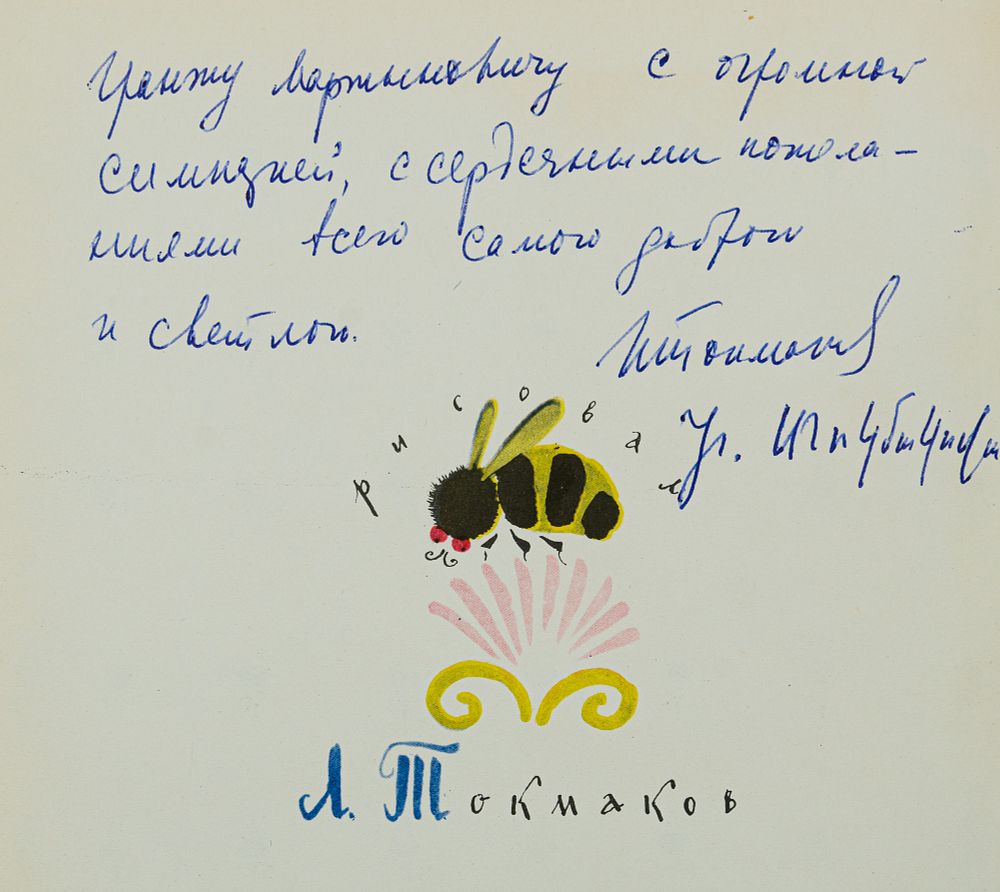 Гранту Мартыновичу с огромной
симпатией, с сердечными пожела-
ниями всего самого доброго
и светлого.
ИТокмакова
рисовал
Л. Токмаков